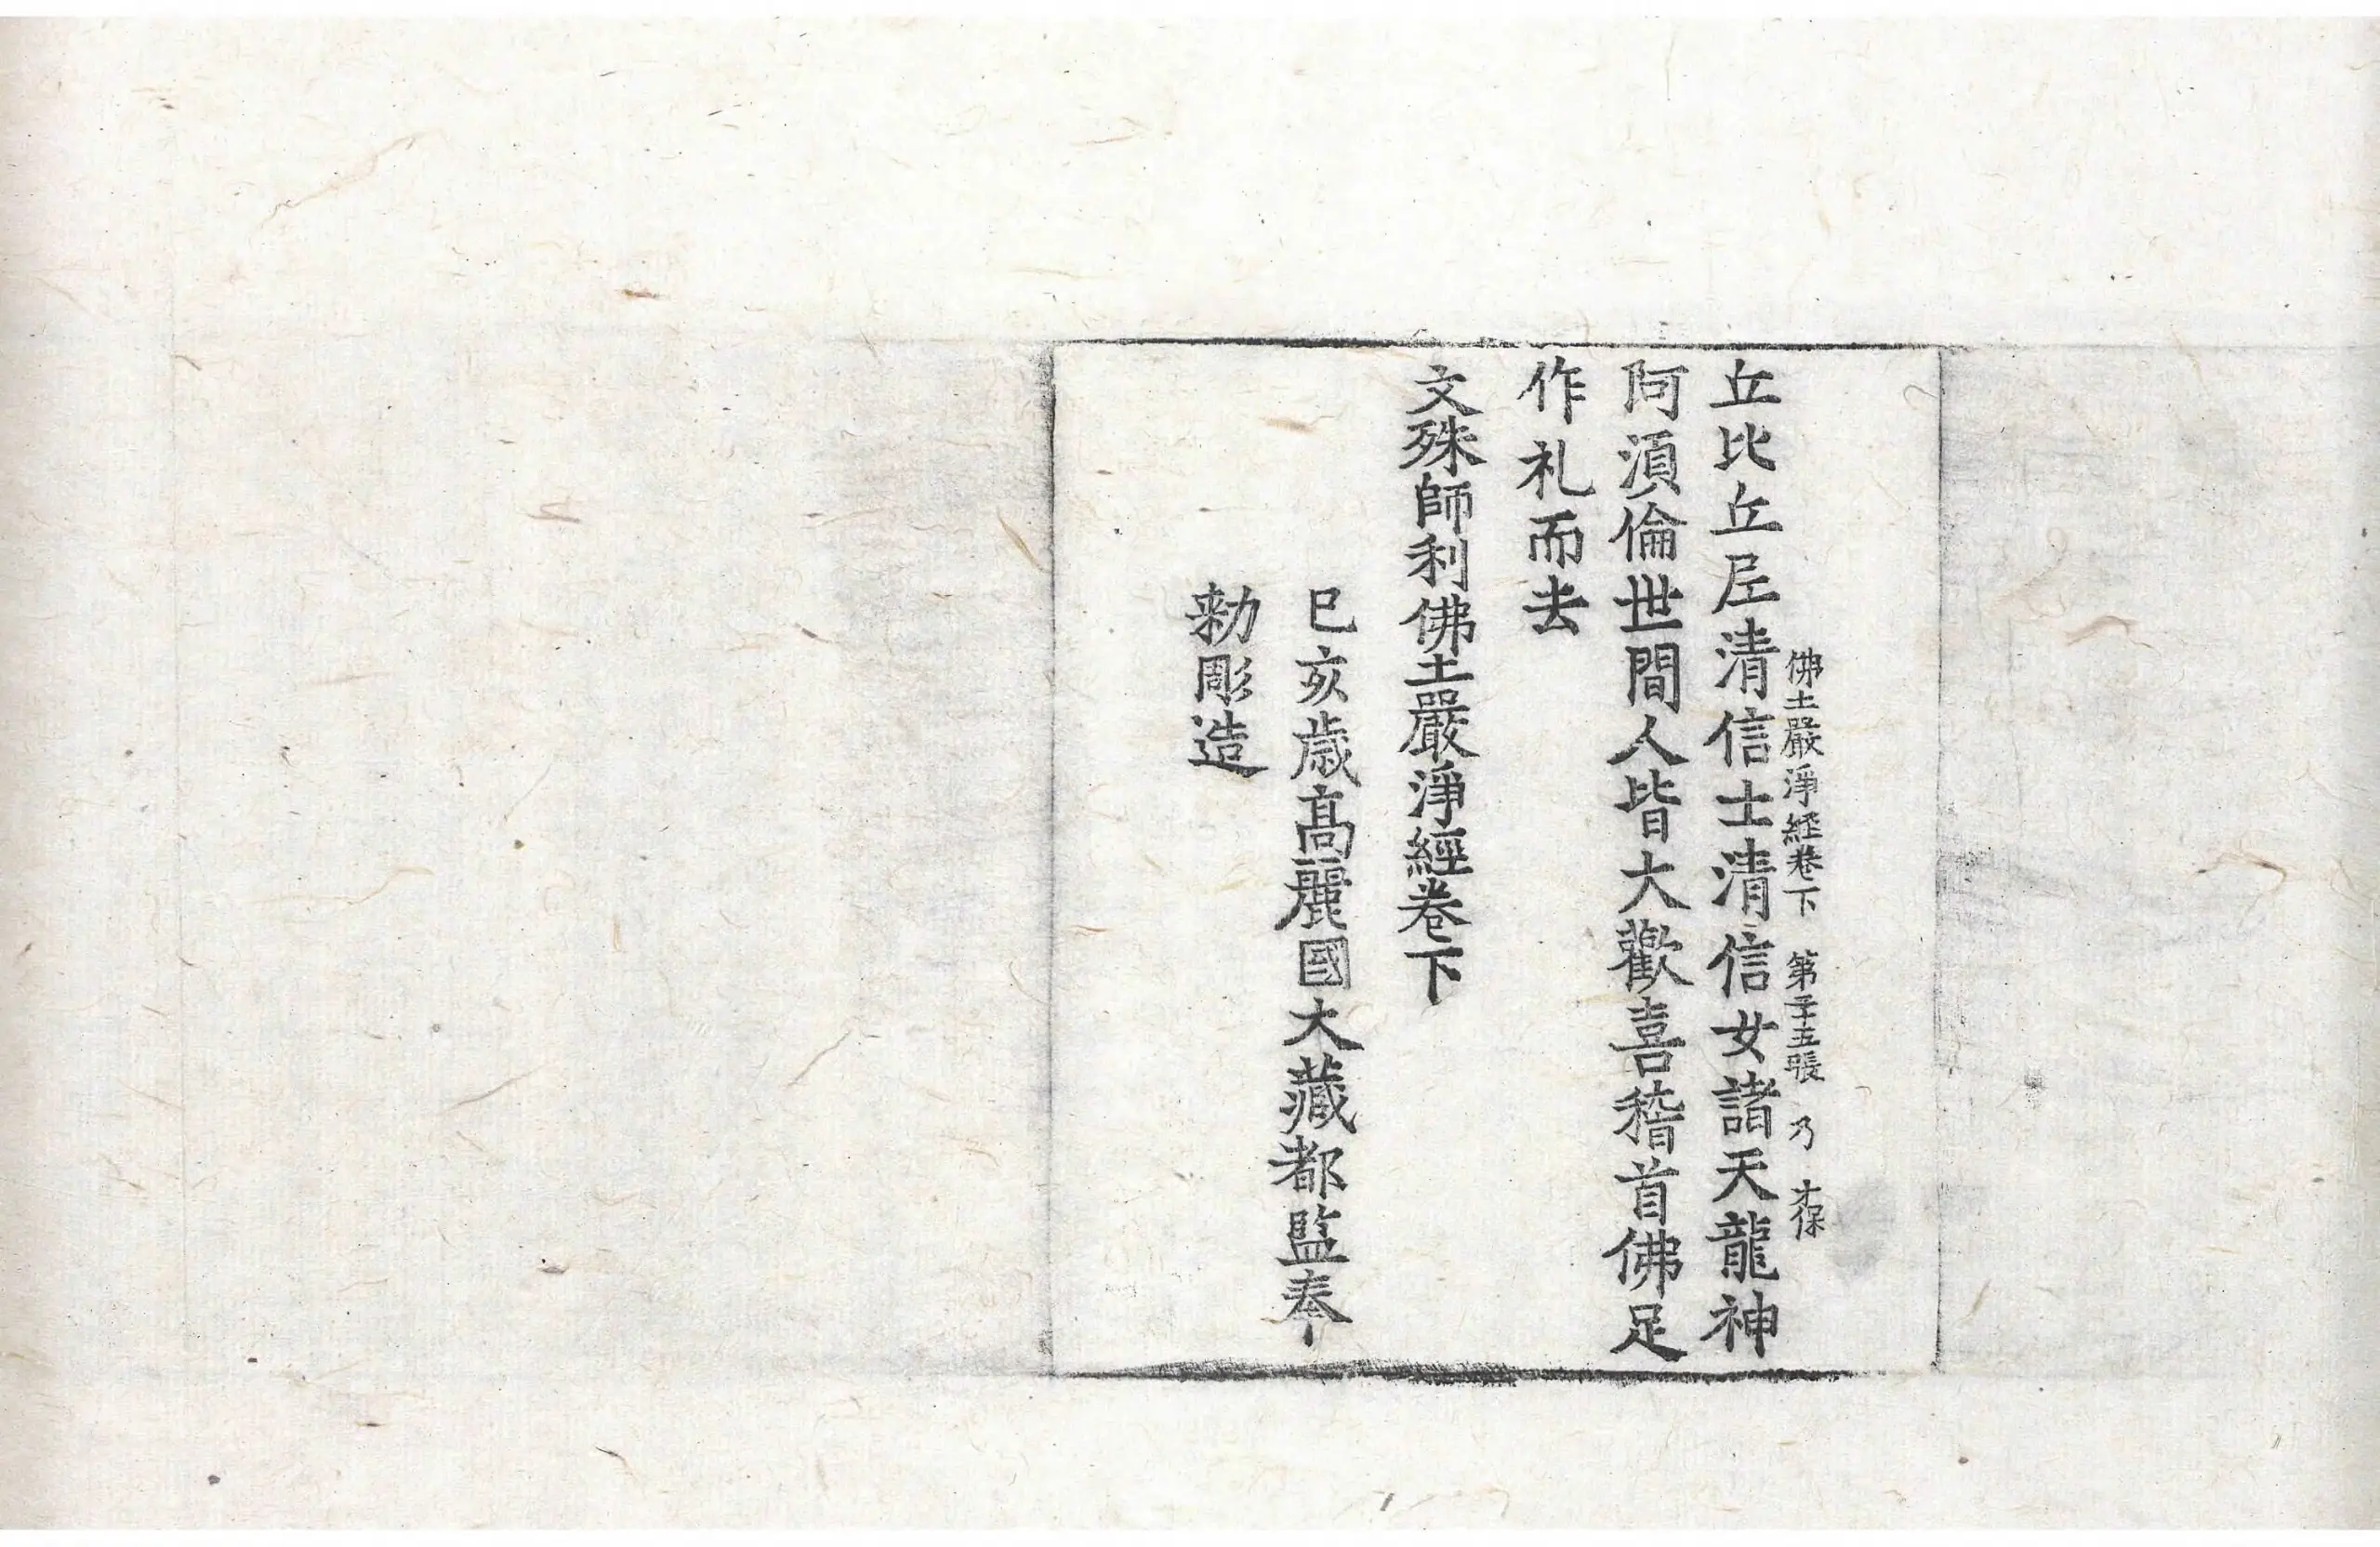 佛土嚴淨經卷下 第二十五張 乃 才保
丘比丘尼清信士清信女諸天龍神
阿須倫世間人皆大歡喜稽首佛足
作礼而去
文殊師利佛土嚴淨經卷下
己亥歲高麗國大藏都監奉
勑彫造